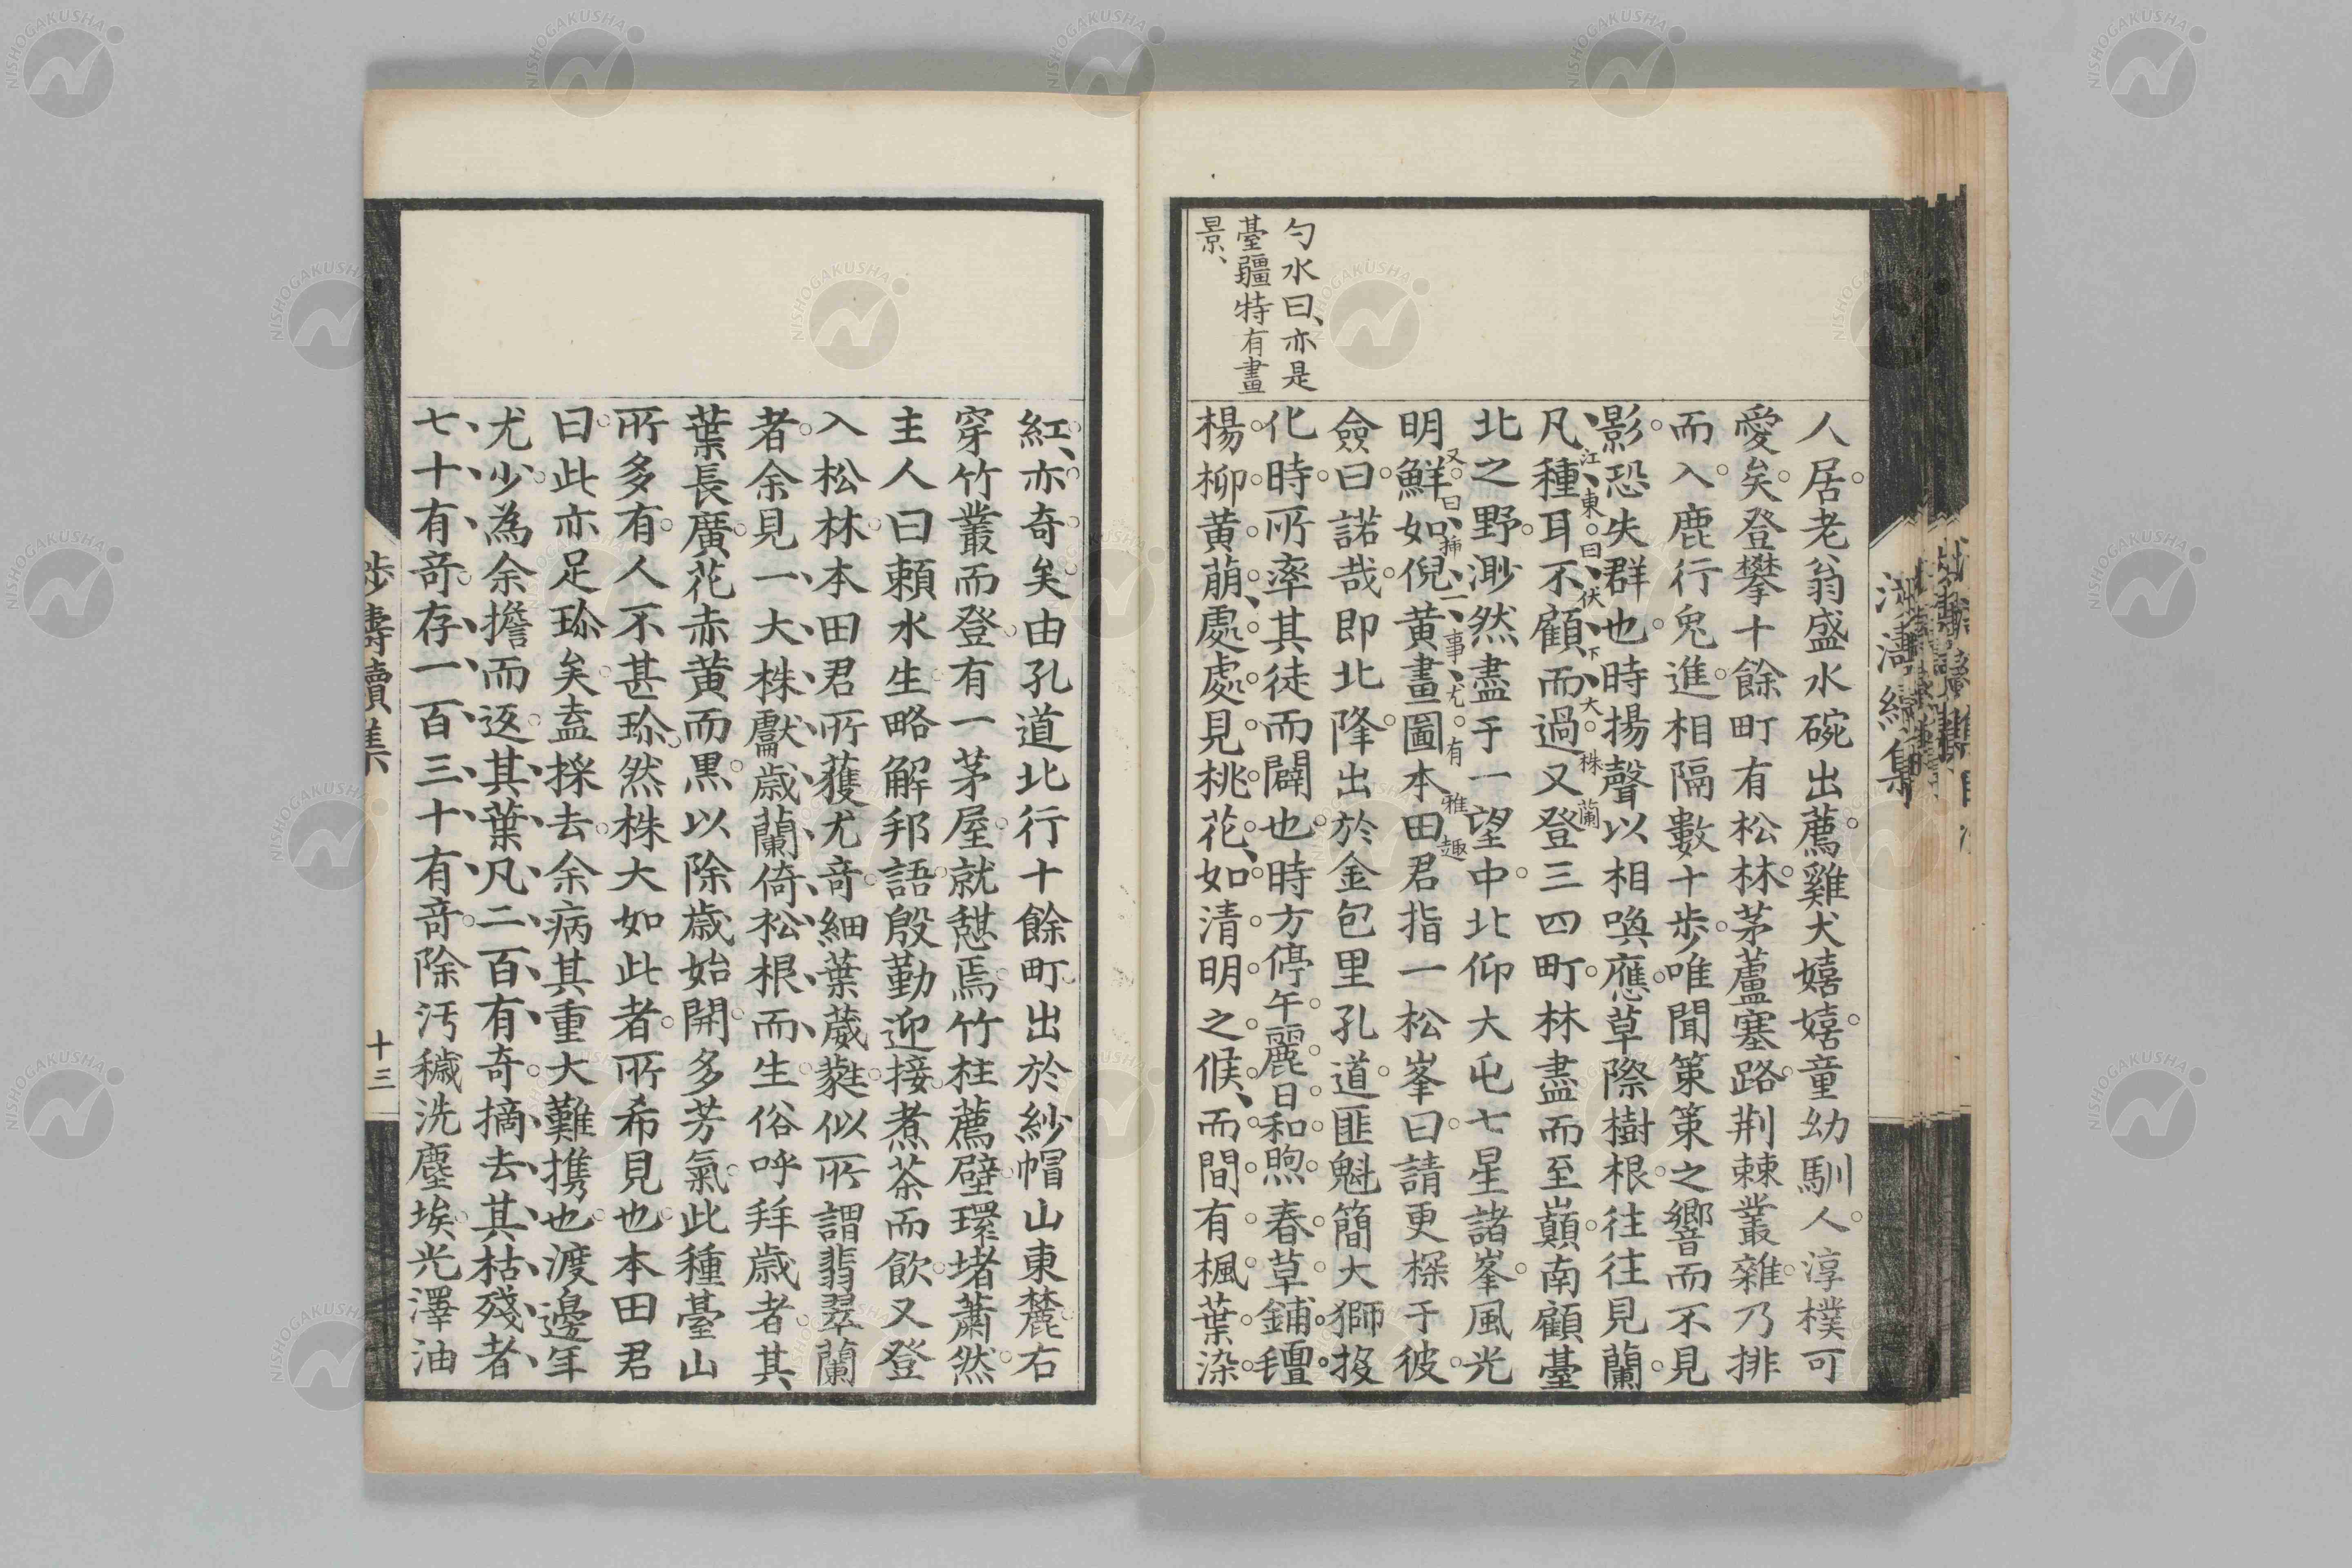 勺水曰、亦是
臺疆特有畫
景、
人居老翁盛水碗出薦雞犬嬉嬉童幼馴人淳樸可
愛矣登攀十餘町有松林茅蘆塞路荆棘叢雜乃排
而入鹿行兔進相隔數十步唯聞策策之響而不見
影恐失群也時揚聲以相喚應草際樹根往往見蘭
江東曰伏下大株蘭
凡種耳不顧而過又登三四町林盡而至巔南顧臺
北之野渺然盡于一望中北仰大屯七星諸峯風光
又曰揷二事尤有雅趣
明鮮如倪黃畫圖本田君指一松峯曰請更探于彼
僉曰諾哉即北降出於金包里孔道匪魁簡大獅投
化時所率其徒而闢也時方停午麗日和煦春草鋪氈
楊柳黄萠處處見桃花如清明之候、而間有楓葉染
紅、亦奇矣由孔道北行十餘町出於紗帽山東麓右
穿竹叢而登有一茅屋就憇焉竹柱薦壁環堵蕭然
主人曰賴水生略解邦語殷勤迎接煮茶而飲又登
入松林本田君所獲尤竒細葉葳蕤似所謂翡翠蘭
者余見一大株獻歲蘭倚松根而生俗呼拜歲者其
葉長廣花赤黄而黑以除歲始開多芳氣此種臺山
所多有人不甚珍然株大如此者所希見也本田君
曰此亦足珍矣盍採去余病其重大難携也渡邊年
尤少為余擔而返其葉凡二百有奇摘去其枯殘者
七十有竒存一百三十有竒除汚穢洗塵埃光澤油
十三
NISHOGAKUSHA